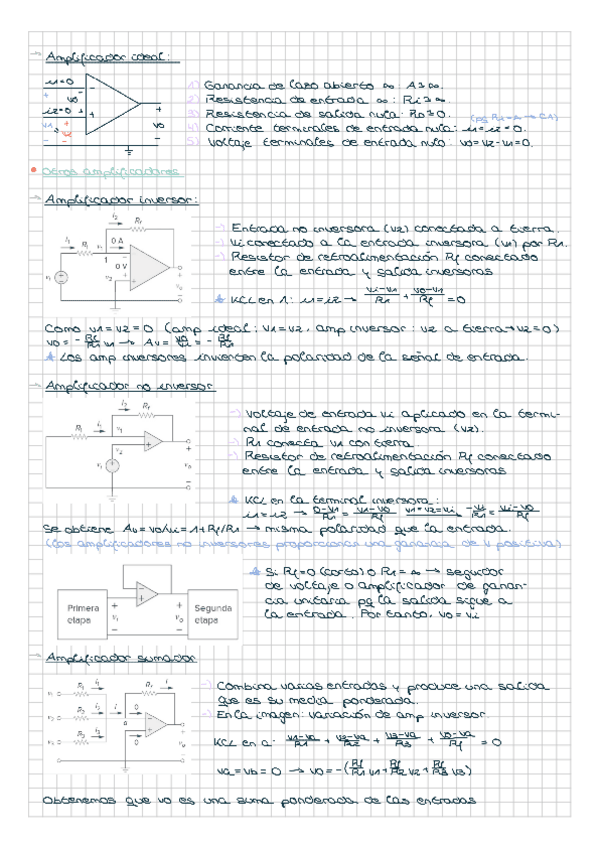 → Amplificador ideal:
i1=0
v0
i2=0
v1
v2
v0
1) Ganancia de lazo abierto ∞: A→∞.
2) Resistencia de entrada ∞: Ri→∞.
3) Resistencia de salida nula: Ro→0.
4) Corriente terminales de entrada nula: i1=i2=0.
5) Voltaje terminales de entrada nulo: v0=v2-v1=0.
• Otros amplificadores
→ Amplificador inversor:
→) Entrada no inversora (v2) conectada a tierra.
→) vi conectado a la entrada inversora (v1) por R1.
→) Resistor de retroalimentación Rf conectado
entre la entrada y salida inversoras
KCL en 1: i1=i2 → (vi-v1)/R1 + (v0-v1)/Rf = 0
i2 Rf
i1 Ri v1 0 A
1
0 V
v2
vi
vo
Como v1=v2=0 (amp ideal: v1=v2, amp inversor: v2 a tierra→v2=0)
v0 = - Rf/R1 v1 → Av = v0/vi = - Rf/R1
Los amp inversores invierten la polaridad de la señal de entrada.
→ Amplificador no inversor
→) Voltaje de entrada vi aplicado en la termi-
nal de entrada no inversora (v2).
→) R1 conecta v1 con tierra
→) Resistor de retroalimentación Rf conectado
entre la entrada y salida inversoras
i2 Rf
Ri i1 v1
v2
vi
vo
KCL en la terminal inversora:
i1=i2 → (0-v1)/R1 = (v1-v0)/Rf v1=v2=vi → -vi/R1 = (vi-v0)/Rf
Se obtiene Av=v0/vi=1+Rf/R1 → misma polaridad que la entrada.
(Los amplificadores no inversores proporcionan una ganancia de v positiva)
Primera
etapa
vi
vo
Segunda
etapa
Si Rf=0 (corto) o R1=∞ → seguidor
de voltaje o amplificador de ganan-
cia unitaria pq la salida sigue a
la entrada. Por tanto, v0=vi
→ Amplificador sumador
→) Combina varias entradas y produce una salida
que es su media ponderada.
→) En la imagen: variación de amp inversor
KCL en a: (v1-va)/R1 + (v2-va)/R2 + (v3-va)/R3 + (v0-va)/Rf = 0
va=vb=0 → v0=-(Rf/R1 v1+Rf/R2 v2+Rf/R3 v3)
v1 R1 i1
v2 R2 i2
v3 R3 i3
Rf i
i
a
0
0
vo
Obtenemos que v0 es una suma ponderada de las entradas